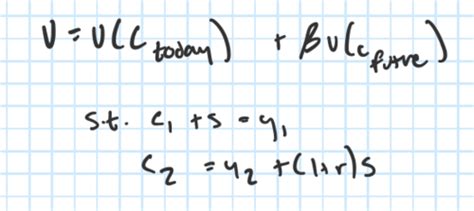 U = U(C today) + βU(C future)
s.t. c₁ + s = y₁
c₂ = y₂ + (1+r)s